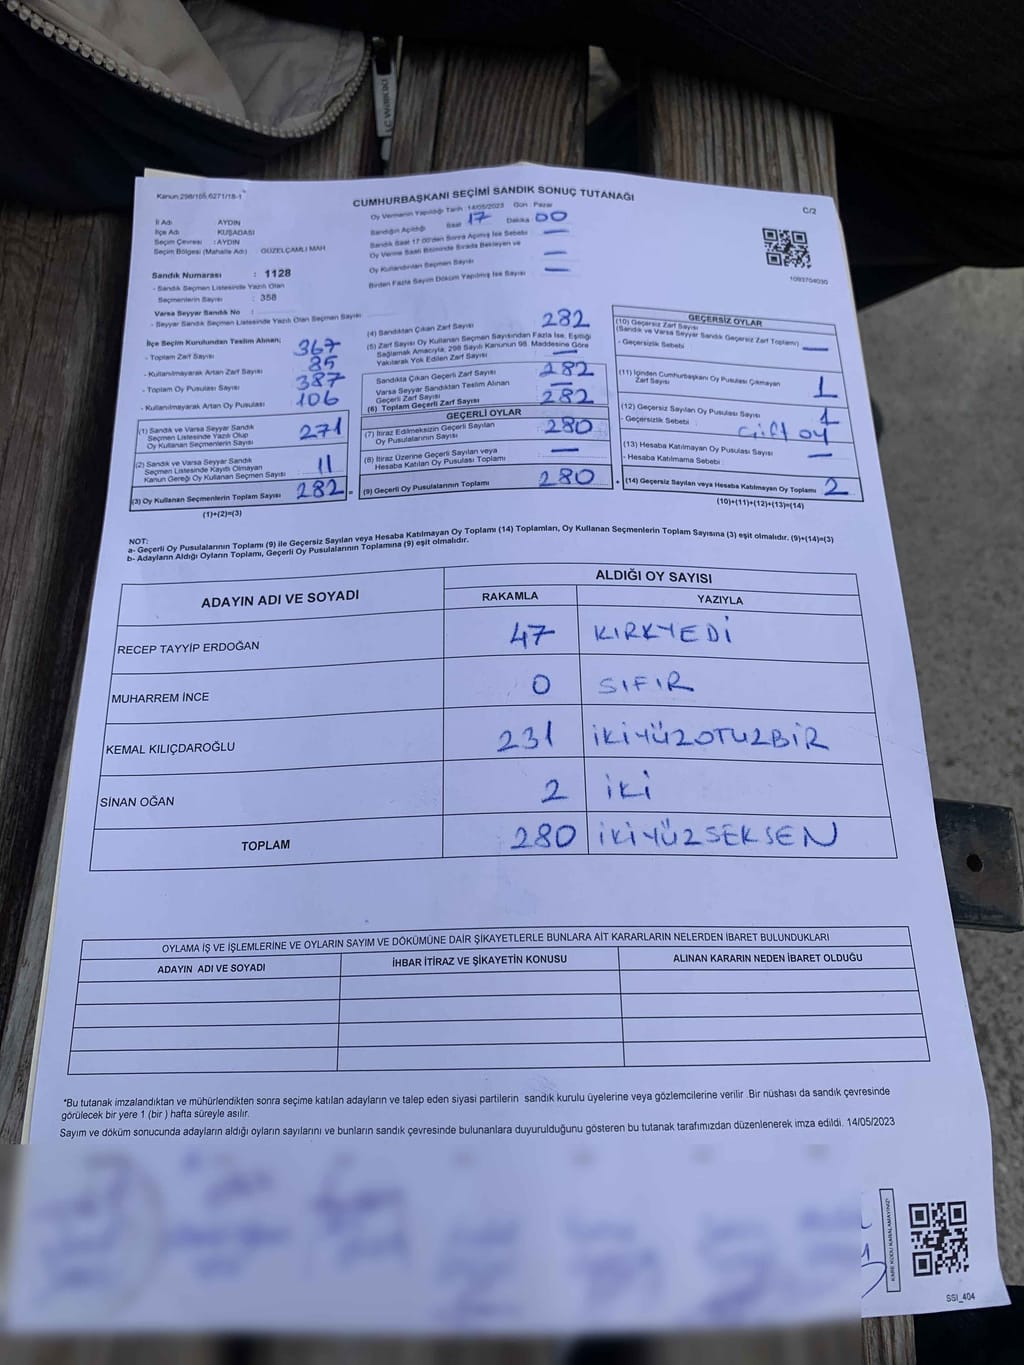 LC WAIKIKI
Kanun:298/105,6271/18-1
CUMHURBAŞKANI SEÇİMİ SANDIK SONUÇ TUTANAĞI
C/2
Oy Vermenin Yapıldığı Tarih : 14/05/2023 Gün : Pazar
İl Adı AYDIN
İlçe Adı KUŞADASI
Seçim Çevresi : AYDIN
Seçim Bölgesi (Mahalle Adı) GÜZELÇAMLI MAH
Sandığın Açıldığı Saat 17 Dakika 00
Sandık Saat 17:00'den Sonra Açılmış İse Sebebi —
Oy Verme Saati Bitiminde Sırada Bekleyen ve
Oy Kullandırılan Seçmen Sayısı —
Birden Fazla Sayım Döküm Yapılmış İse Sayısı —
1093704030
Sandık Numarası : 1128
- Sandık Seçmen Listesinde Yazılı Olan
Seçmenlerin Sayısı : 358
Varsa Seyyar Sandık No :
- Seyyar Sandık Seçmen Listesinde Yazılı Olan Seçmen Sayısı
İlçe Seçim Kurulundan Teslim Alınan;
- Toplam Zarf Sayısı 367
- Kullanılmayarak Artan Zarf Sayısı 85
- Toplam Oy Pusulası Sayısı 387
- Kullanılmayarak Artan Oy Pusulası 106
(1) Sandık ve Varsa Seyyar Sandık
Seçmen Listesinde Yazılı Olup
Oy Kullanan Seçmenlerin Sayısı 271
(2) Sandık ve Varsa Seyyar Sandık
Seçmen Listesinde Kayıtlı Olmayan
Kanun Gereği Oy Kullanan Seçmen Sayısı 11
(3) Oy Kullanan Seçmenlerin Toplam Sayısı 282 =
(1)+(2)=(3)
(4) Sandıktan Çıkan Zarf Sayısı 282
(5) Zarf Sayısı Oy Kullanan Seçmen Sayısından Fazla İse, Eşitliği
Sağlamak Amacıyla; 298 Sayılı Kanunun 98. Maddesine Göre
Yakılarak Yok Edilen Zarf Sayısı —
Sandıkta Çıkan Geçerli Zarf Sayısı 282
Varsa Seyyar Sandıktan Teslim Alınan
Geçerli Zarf Sayısı —
(6) Toplam Geçerli Zarf Sayısı 282
GEÇERLİ OYLAR
(7) İtiraz Edilmeksizin Geçerli Sayılan
Oy Pusulalarının Sayısı 280
(8) İtiraz Üzerine Geçerli Sayılan veya
Hesaba Katılan Oy Pusulası Toplamı —
(9) Geçerli Oy Pusulalarının Toplamı 280 +
GEÇERSİZ OYLAR
(10) Geçersiz Zarf Sayısı
(Sandık ve Varsa Seyyar Sandık Geçersiz Zarf Toplamı) —
- Geçersizlik Sebebi :
(11) İçinden Cumhurbaşkanı Oy Pusulası Çıkmayan
Zarf Sayısı 1
(12) Geçersiz Sayılan Oy Pusulası Sayısı 1
- Geçersizlik Sebebi : Çift oy
(13) Hesaba Katılmayan Oy Pusulası Sayısı —
- Hesaba Katılmama Sebebi :
(14) Geçersiz Sayılan veya Hesaba Katılmayan Oy Toplamı 2
(10)+(11)+(12)+(13)=(14)
NOT:
a- Geçerli Oy Pusulalarının Toplamı (9) ile Geçersiz Sayılan veya Hesaba Katılmayan Oy Toplamı (14) Toplamları, Oy Kullanan Seçmenlerin Toplam Sayısına (3) eşit olmalıdır. (9)+(14)=(3)
b- Adayların Aldığı Oyların Toplamı, Geçerli Oy Pusulalarının Toplamına (9) eşit olmalıdır.
ADAYIN ADI VE SOYADI ALDIĞI OY SAYISI
RAKAMLA YAZIYLA
RECEP TAYYİP ERDOĞAN 47 KIRKYEDİ
MUHARREM İNCE 0 SIFIR
KEMAL KILIÇDAROĞLU 231 İKİYÜZOTUZBİR
SİNAN OĞAN 2 İKİ
TOPLAM 280 İKİYÜZSEKSEN
OYLAMA İŞ VE İŞLEMLERİNE VE OYLARIN SAYIM VE DÖKÜMÜNE DAİR ŞİKAYETLERLE BUNLARA AİT KARARLARIN NELERDEN İBARET BULUNDUKLARI
ADAYIN ADI VE SOYADI İHBAR İTİRAZ VE ŞİKAYETİN KONUSU ALINAN KARARIN NEDEN İBARET OLDUĞU
*Bu tutanak imzalandıktan ve mühürlendikten sonra seçime katılan adayların ve talep eden siyasi partilerin sandık kurulu üyelerine veya gözlemcilerine verilir .Bir nüshası da sandık çevresinde
görülecek bir yere 1 (bir ) hafta süreyle asılır.
Sayım ve döküm sonucunda adayların aldığı oyların sayılarını ve bunların sandık çevresinde bulunanlara duyurulduğunu gösteren bu tutanak tarafımızdan düzenlenerek imza edildi. 14/05/2023
KARE KODU KARALAMAYINIZ!
SSI_404